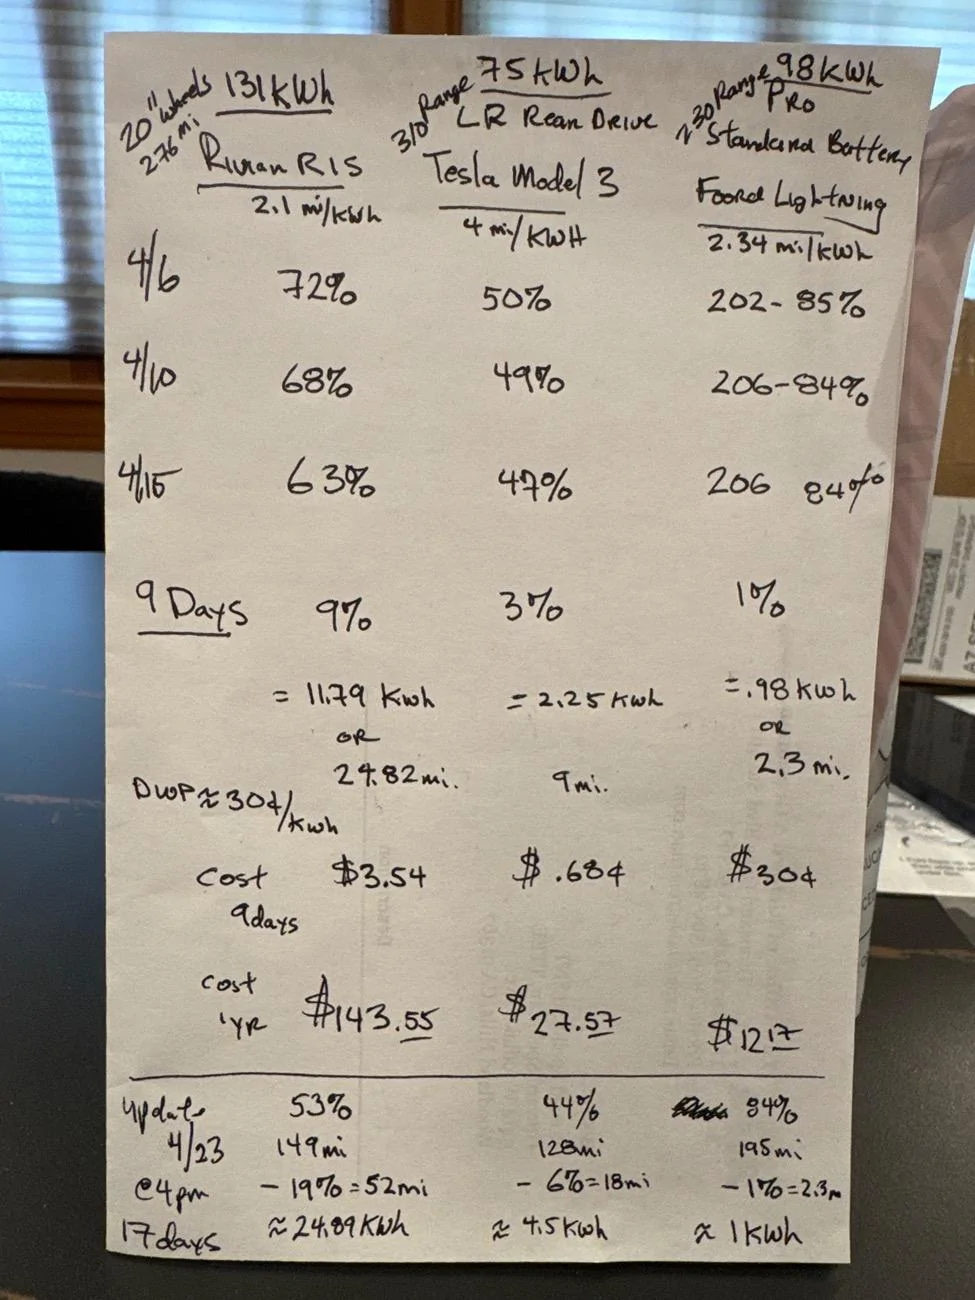 20" Wheels 131 KWh
276 mi
Rivian R1S
2.1 mi/KWh
310 Range 75 KWh
LR Rear Drive
Tesla Model 3
4 mi/KWH
~230 Range 98 KWh
PRO
Standard Battery
Foord Lightning
2.34 mi/KWh
4/6 72% 50% 202-85%
4/10 68% 49% 206-84%
4/15 63% 47% 206 84%
9 Days 9% 3% 1%
= 11.79 KWh = 2.25 KWh = .98 KWh
OR OR
24.82 mi. 9 mi. 2.3 mi.
DWP ≈ 30¢/KWh
Cost $3.54 $ .68¢ $30¢
9days
Cost $143.55 $27.57 $12 17
1 YR
Update 53% 44% 84%
4/23 149 mi 128 mi 195 mi
@4pm - 19% = 52 mi - 6% = 18 mi - 1% = 2.3 m
17 days ≈ 24.89 KWh ≈ 4.5 KWh ≈ 1 KWh